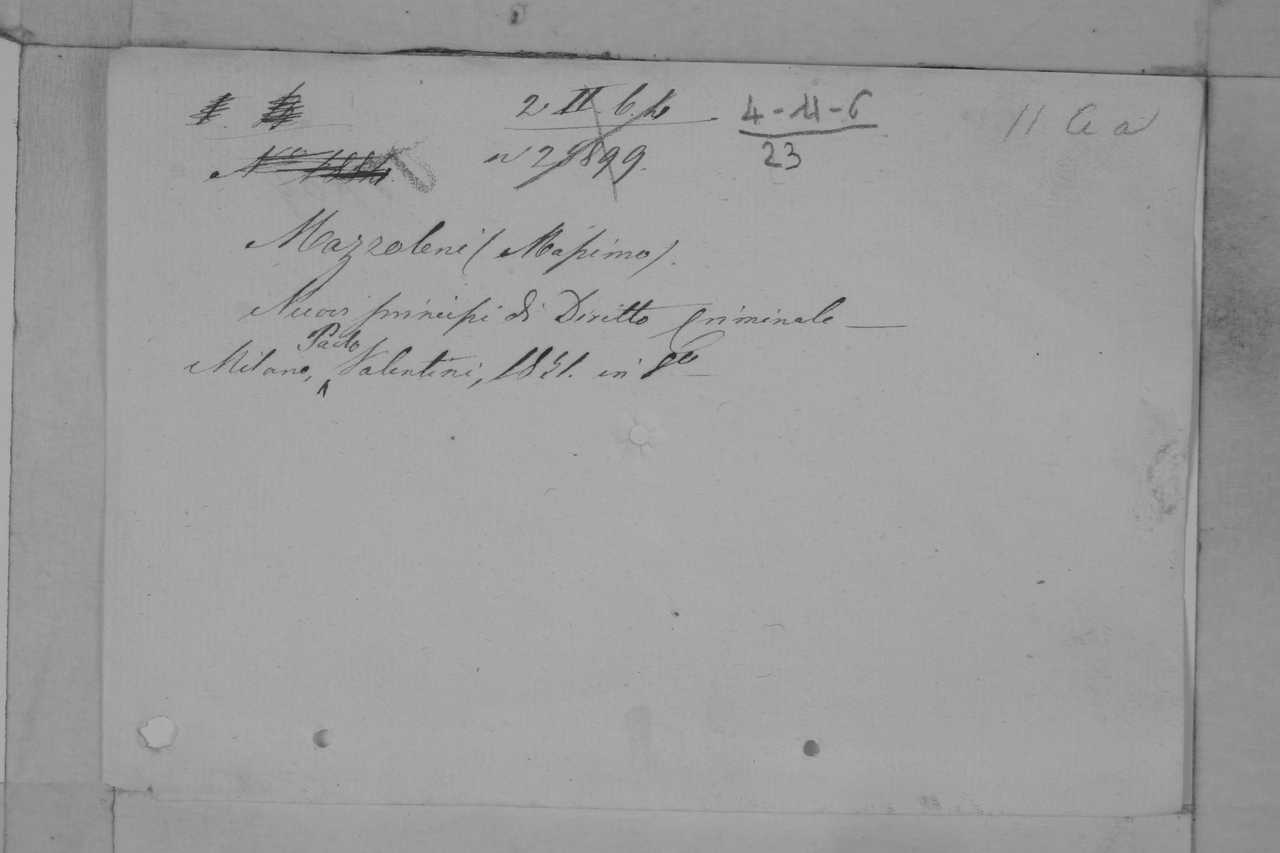 2 II 6. 4 4-11-6 11 C a
n 29899. 23
Mazzoleni (Massimo).
Nuovi principi di Diritto Criminale —
Milano, Paolo Valentini, 1831. in 8º